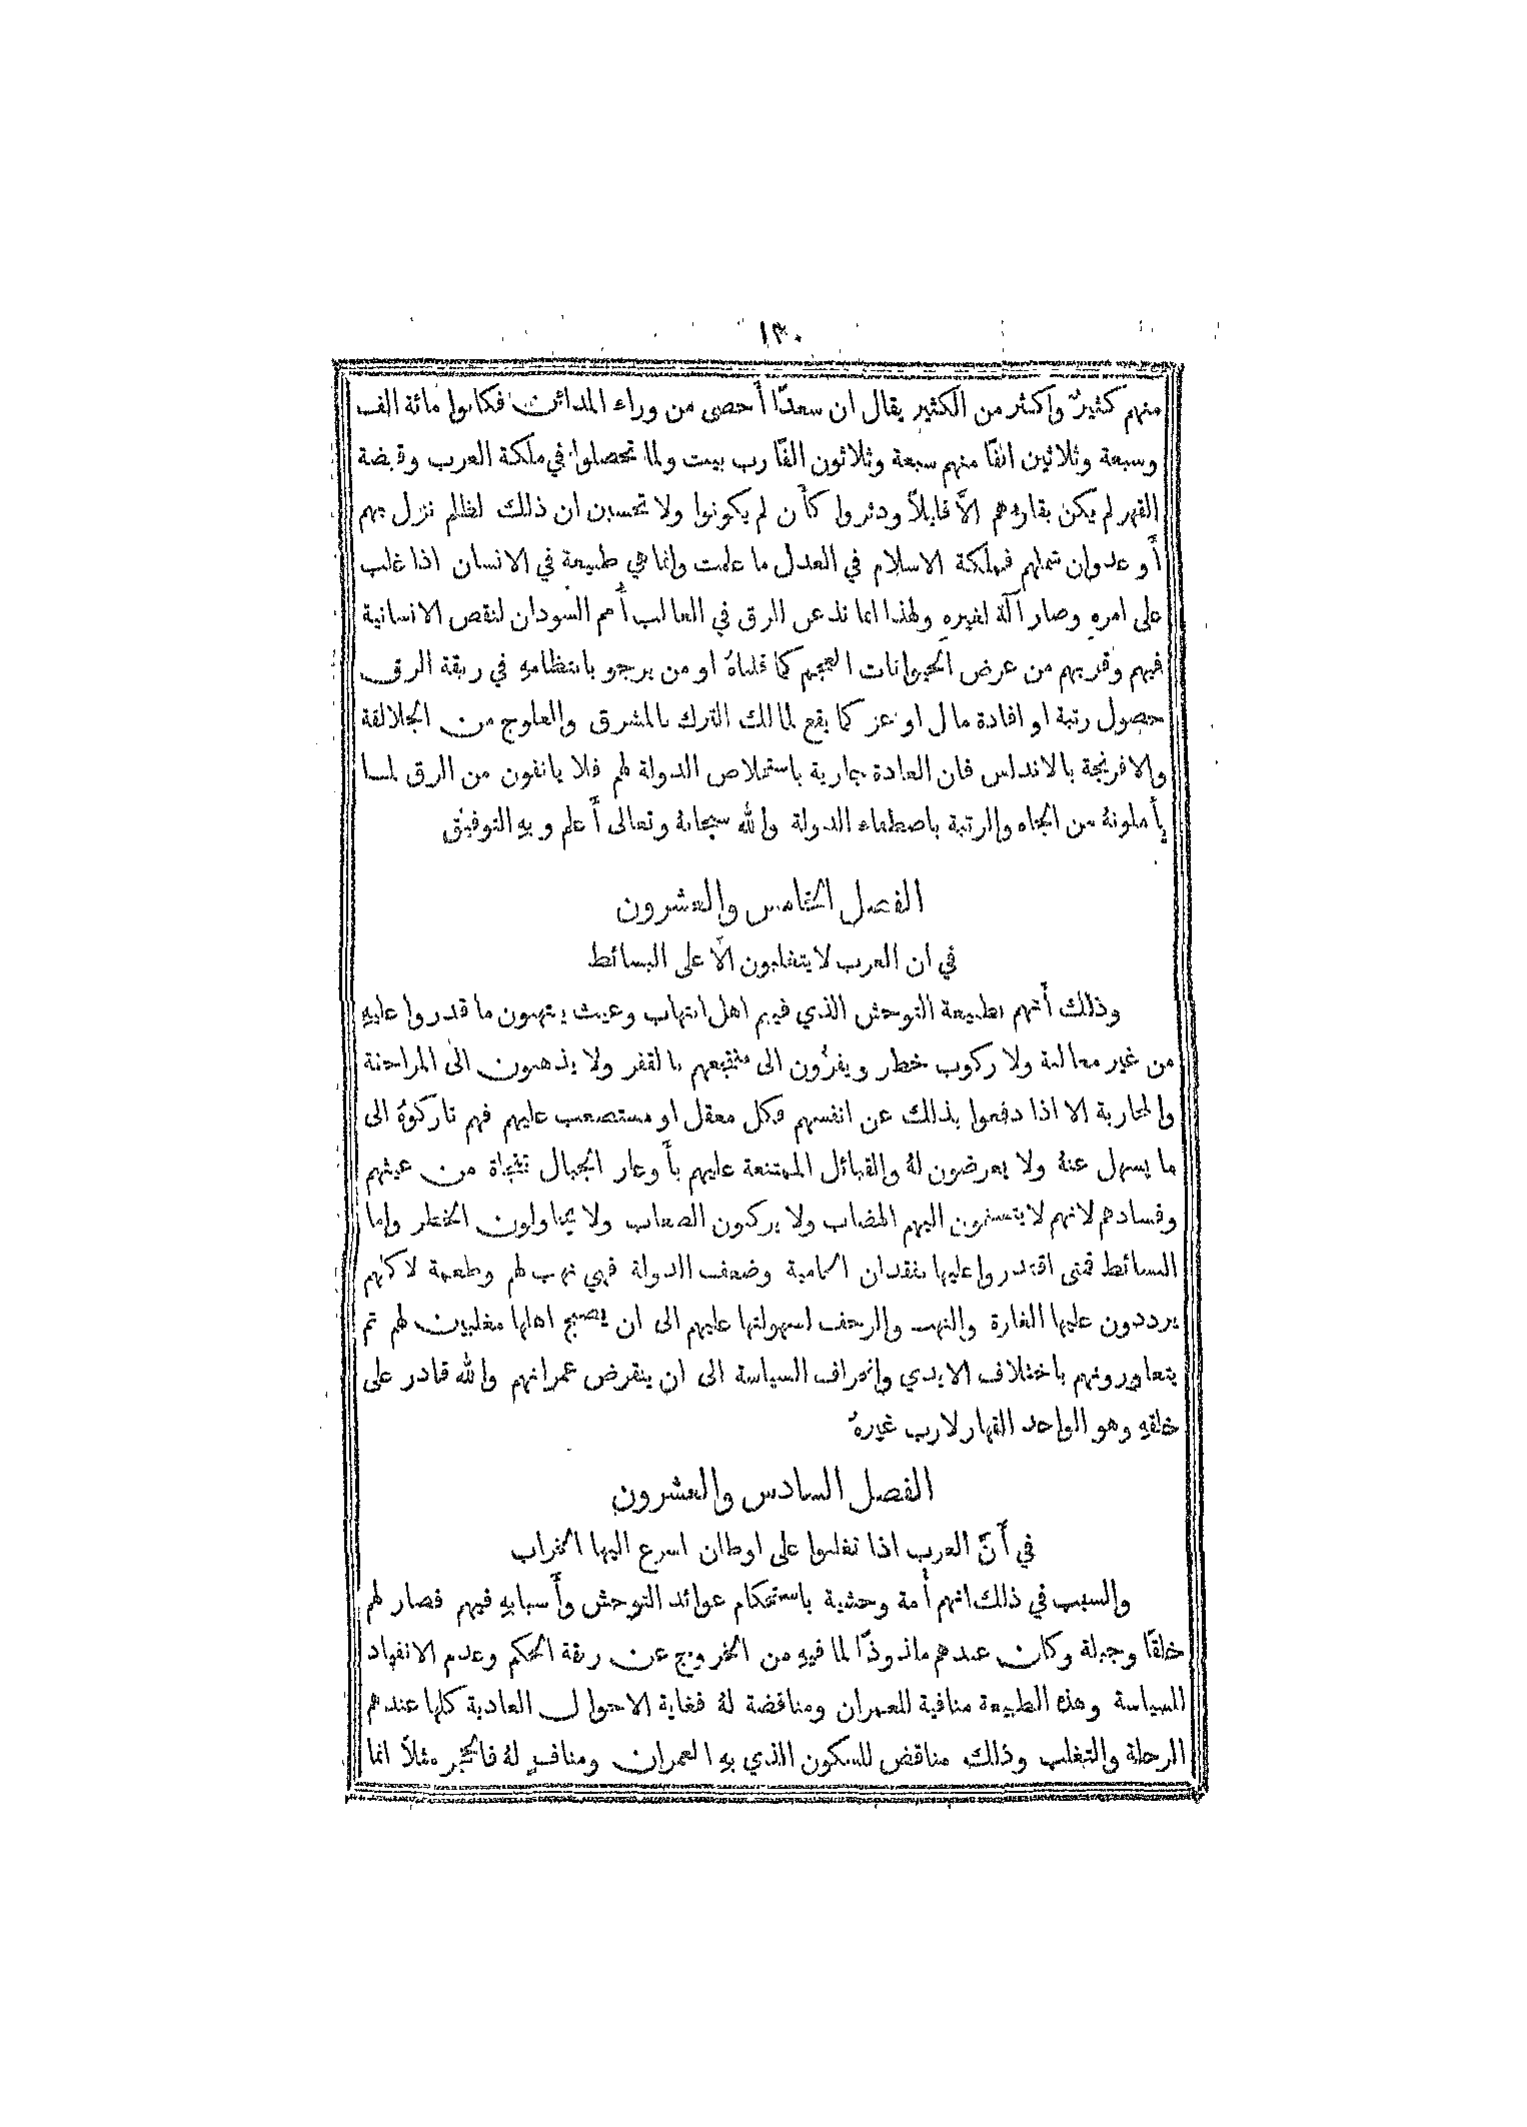 ١٣٠
منهم كثيرٌ واكثر من الكثير يقال ان سعدًا أحصى من وراء المدائن فكانوا مائة الف
وسبعة وثلاثين الفًا منهم سبعة وثلاثون الفًا رب بيت ولما تحصلوا في ملكة العرب وقبضة
القهر لم يكن بقاؤهم الاَّ قليلاً ودثروا كأن لم يكونوا ولا تحسبن ان ذلك لظلم نزل بهم
أو عدوان شملهم فملكة الاسلام في العدل ما علمت وانما هي طبيعة في الانسان اذا غلب
على امرهِ وصار آلة لغيرهِ ولهذا انما تذعن للرق في الغالب أمم السودان لنقص الانسانية
فيهم وقربهم من عرض الحيوانات العجم كما قلناهُ او من يرجو بانتظامهِ في ربقة الرق
حصول رتبة او افادة مال او عز كما يقع لممالك الترك بالمشرق والعلوج من الجلالقة
والافرنجة بالاندلس فان العادة جارية باستخلاص الدولة لهم فلا يانفون من الرق لما
يأملونهُ من الجاه والرتبة باصطفاء الدولة والله سبحانهُ وتعالى أعلم وبهِ التوفيق
الفصل الخامس والعشرون
في ان العرب لا يتغلبون الاَّ على البسائط
وذلك أنهم بطبيعة التوحش الذي فيهم اهل انتهاب وعيث ينتهبون ما قدروا عليهِ
من غير مغالبة ولا ركوب خطر ويفرُّون الى منتجعهم بالقفر ولا يذهبون الى المزاحفة
والمحاربة الا اذا دفعوا بذلك عن انفسهم فكل معقل او مستصعب عليهم فهم تاركوهُ الى
ما يسهل عنهُ ولا يعرضون لهُ والقبائل الممتنعة عليهم بأوعار الجبال بمنجاة من عيثهم
وفسادهم لانهم لا يتسنمون اليهم الهضاب ولا يركبون الصعاب ولا يحاولون الخطر واما
البسائط فمتى اقتدروا عليها بفقدان الحامية وضعف الدولة فهي نهب لهم وطعمة لاكلهم
يرددون عليها الغارة والنهب والزحف لسهولتها عليهم الى ان يصبح اهلها مغلبين لهم ثم
يتعاورونهم باختلاف الايدي وانحراف السياسة الى ان ينقرض عمرانهم والله قادر على
خلقهِ وهو الواحد القهار لا رب غيرهُ
الفصل السادس والعشرون
في أنَّ العرب اذا تغلبوا على اوطان اسرع اليها الخراب
والسبب في ذلك انهم أمة وحشية باستحكام عوائد التوحش وأسبابهِ فيهم فصار لهم
خلقًا وجبلة وكان عندهم ملذوذًا لما فيهِ من الخروج عن ربقة الحكم وعدم الانقياد
للسياسة وهذه الطبيعة منافية للعمران ومناقضة لهُ فغاية الاحوال العادية كلها عندهم
الرحلة والتغلب وذلك مناقض للسكون الذي بهِ العمران ومنافٍ لهُ فالحجر مثلاً انما